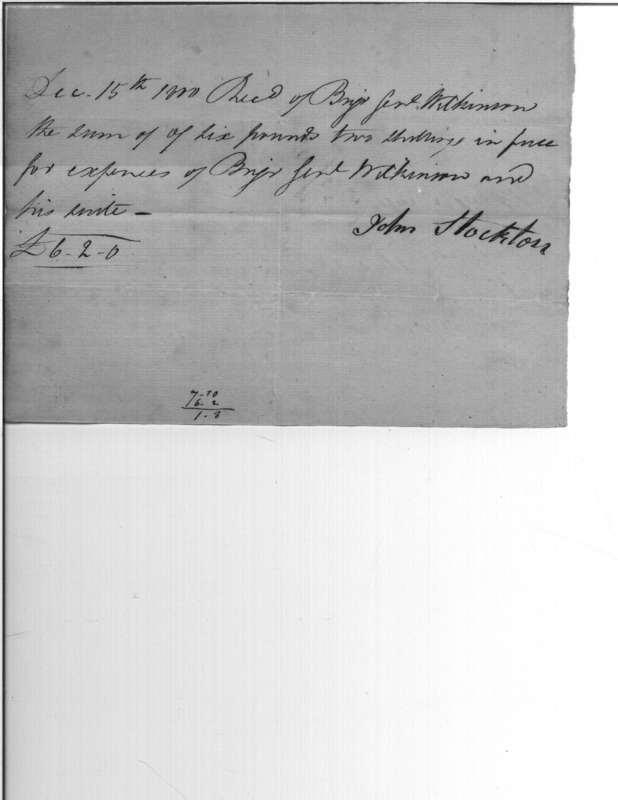 Dec. 15th 1800 Recd of Brigr Genl Wilkinson
the sum of of six pounds two shillings in full
for expences of Brigr Genl Wilkinson and
his suite –
John Stockton
£ 6-2-0
7-10
6-2
1-8